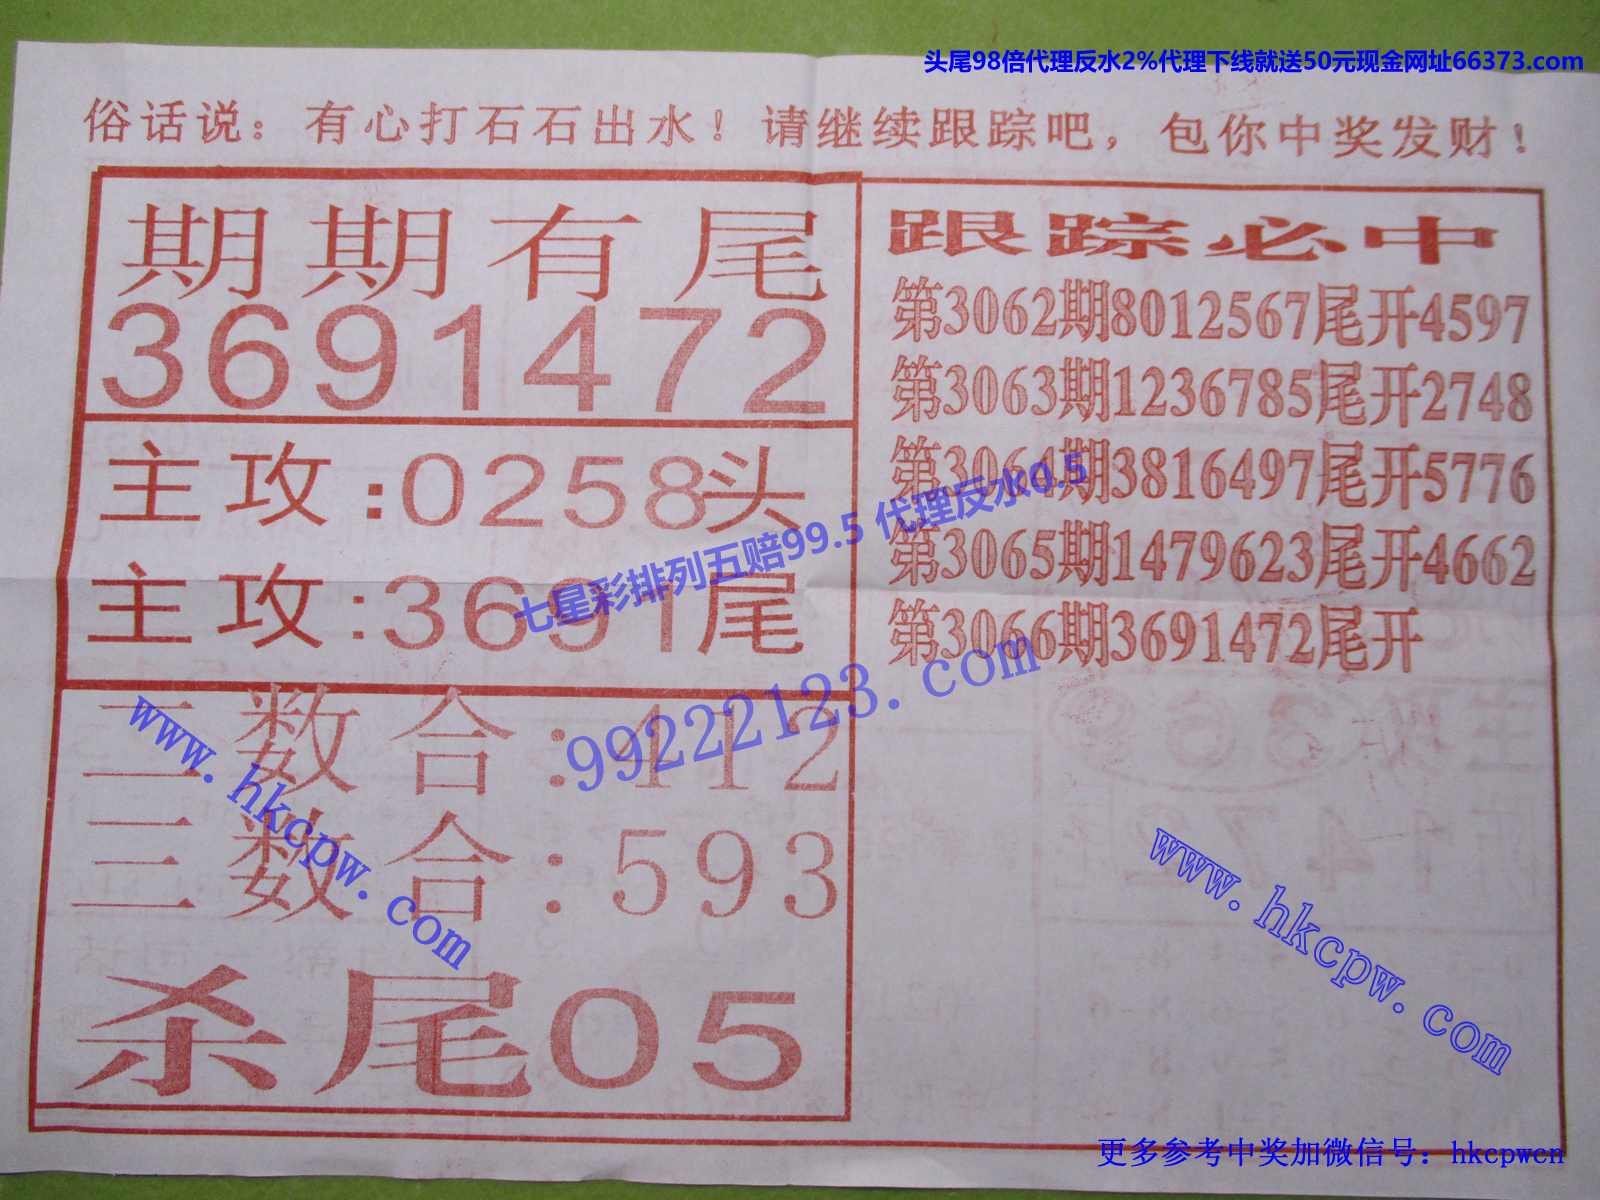 头尾98倍代理反水2%代理下线就送50元现金网址66373.com
俗话说：有心打石石出水！请继续跟踪吧，包你中奖发财！
期期有尾
3691472
主攻:0258头
主攻:3691尾
二数合:412
三数合:593
杀尾05
跟踪必中
第3062期8012567尾开4597
第3063期1236785尾开2748
第3064期3816497尾开5776
第3065期1479623尾开4662
第3066期3691472尾开
七星彩排列五赔99.5 代理反水0.5
99222123.com
www.hkcpw.com
www.hkcpw.com
更多参考中奖加微信号：hkcpwcn